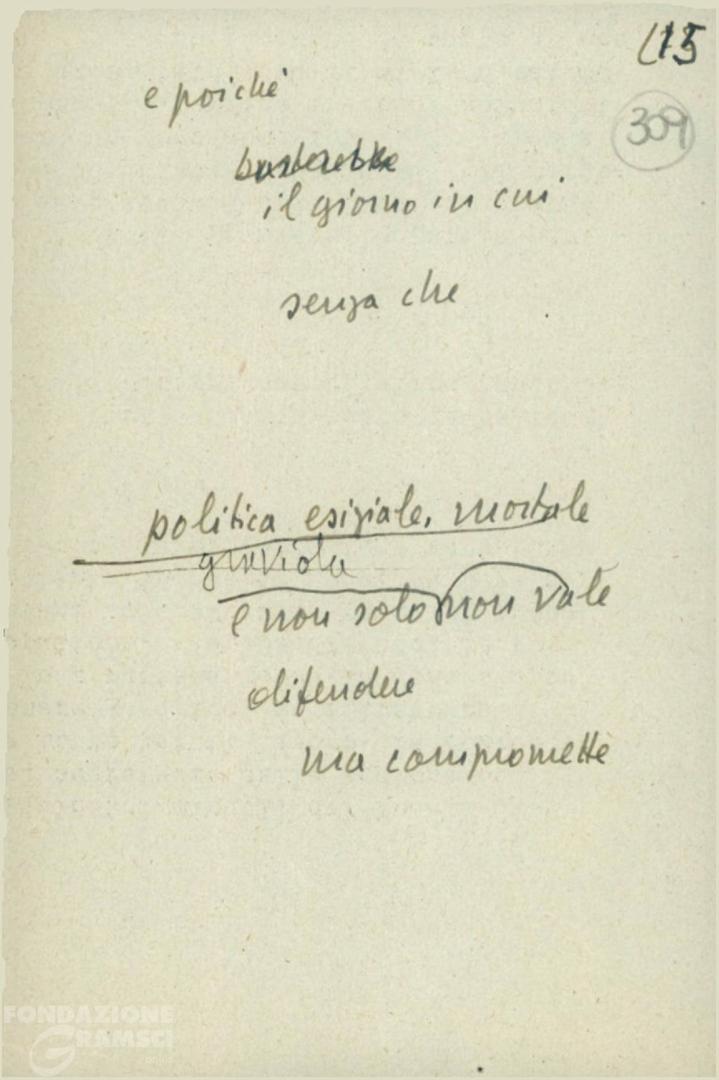 (15
309
e poiché
basterebbe
il giorno in cui
senza che
politica esiziale, mortale
e non solo non vale
difendere
ma compromette
FONDAZIONE
GRAMSCI